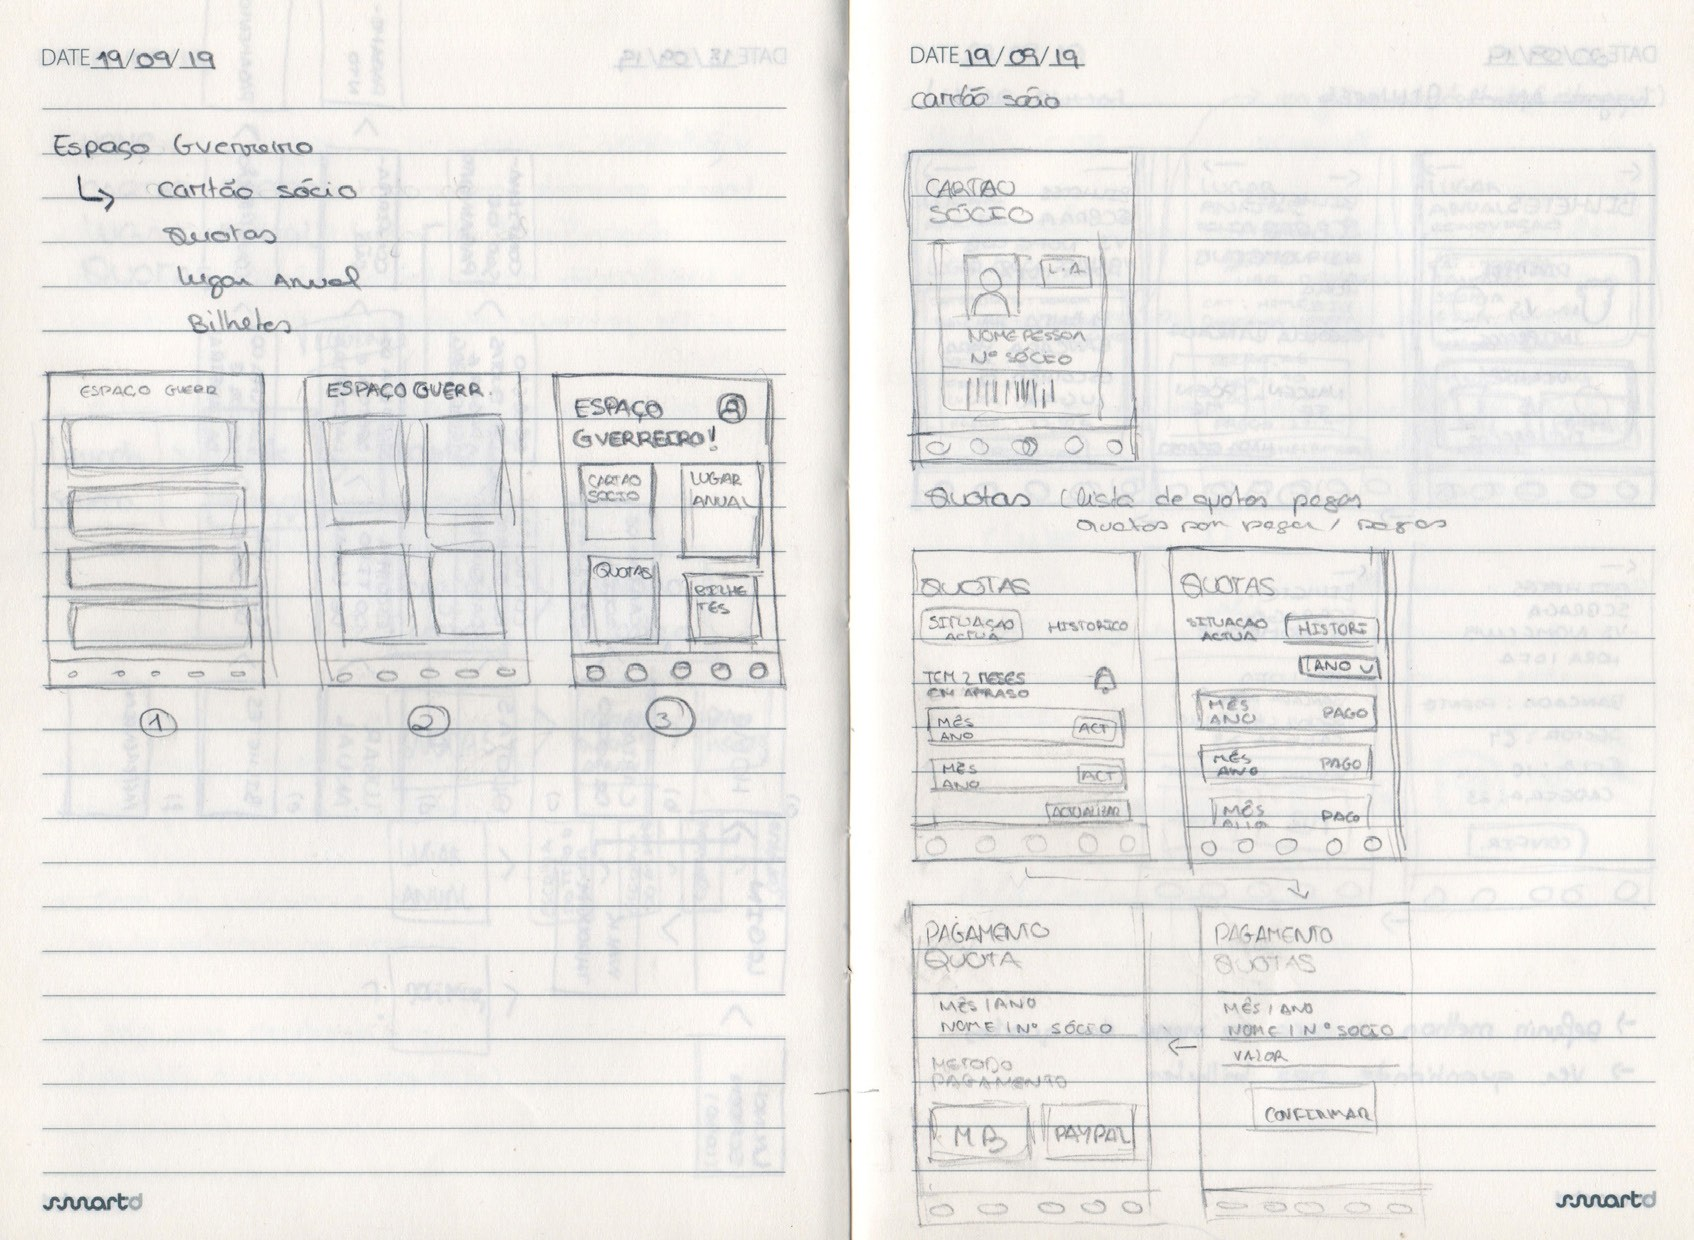 DATE 19/09/19
Espaço Guerreiro
↳ Cartão sócio
Quotas
Lugar Anual
Bilhetes
ESPAÇO GUERR
ESPAÇO GUERR.
ESPAÇO
GUERREIRO!
CARTAO
SOCIO
LUGAR
ANUAL
QUOTAS
BILHE
TES
1
2
3
smartd
DATE 19/09/19
Cartão sócio
CARTAO
SÓCIO
L.A
NOME PESSOA
Nº SÓCIO
Quotas (lista de quotas pagas
Quotas por pagar / pagas
QUOTAS
SITUAÇAO
ACTUA
HISTORICO
TEM 2 MESES
EM ATRASO
MÊS
ANO
ACT
MÊS
ANO
ACT
ACTUALIZAR
QUOTAS
SITUAÇAO
ACTUA
HISTORI
ANO
MÊS
ANO
PAGO
MÊS
ANO
PAGO
MÊS
PAGO
PAGAMENTO
QUOTA
MÊS / ANO
NOME / Nº SÓCIO
METODO
PAGAMENTO
MB
PAYPAL
PAGAMENTO
QUOTAS
MÊS / ANO
NOME / Nº SOCIO
VALOR
CONFIRMAR
smartd